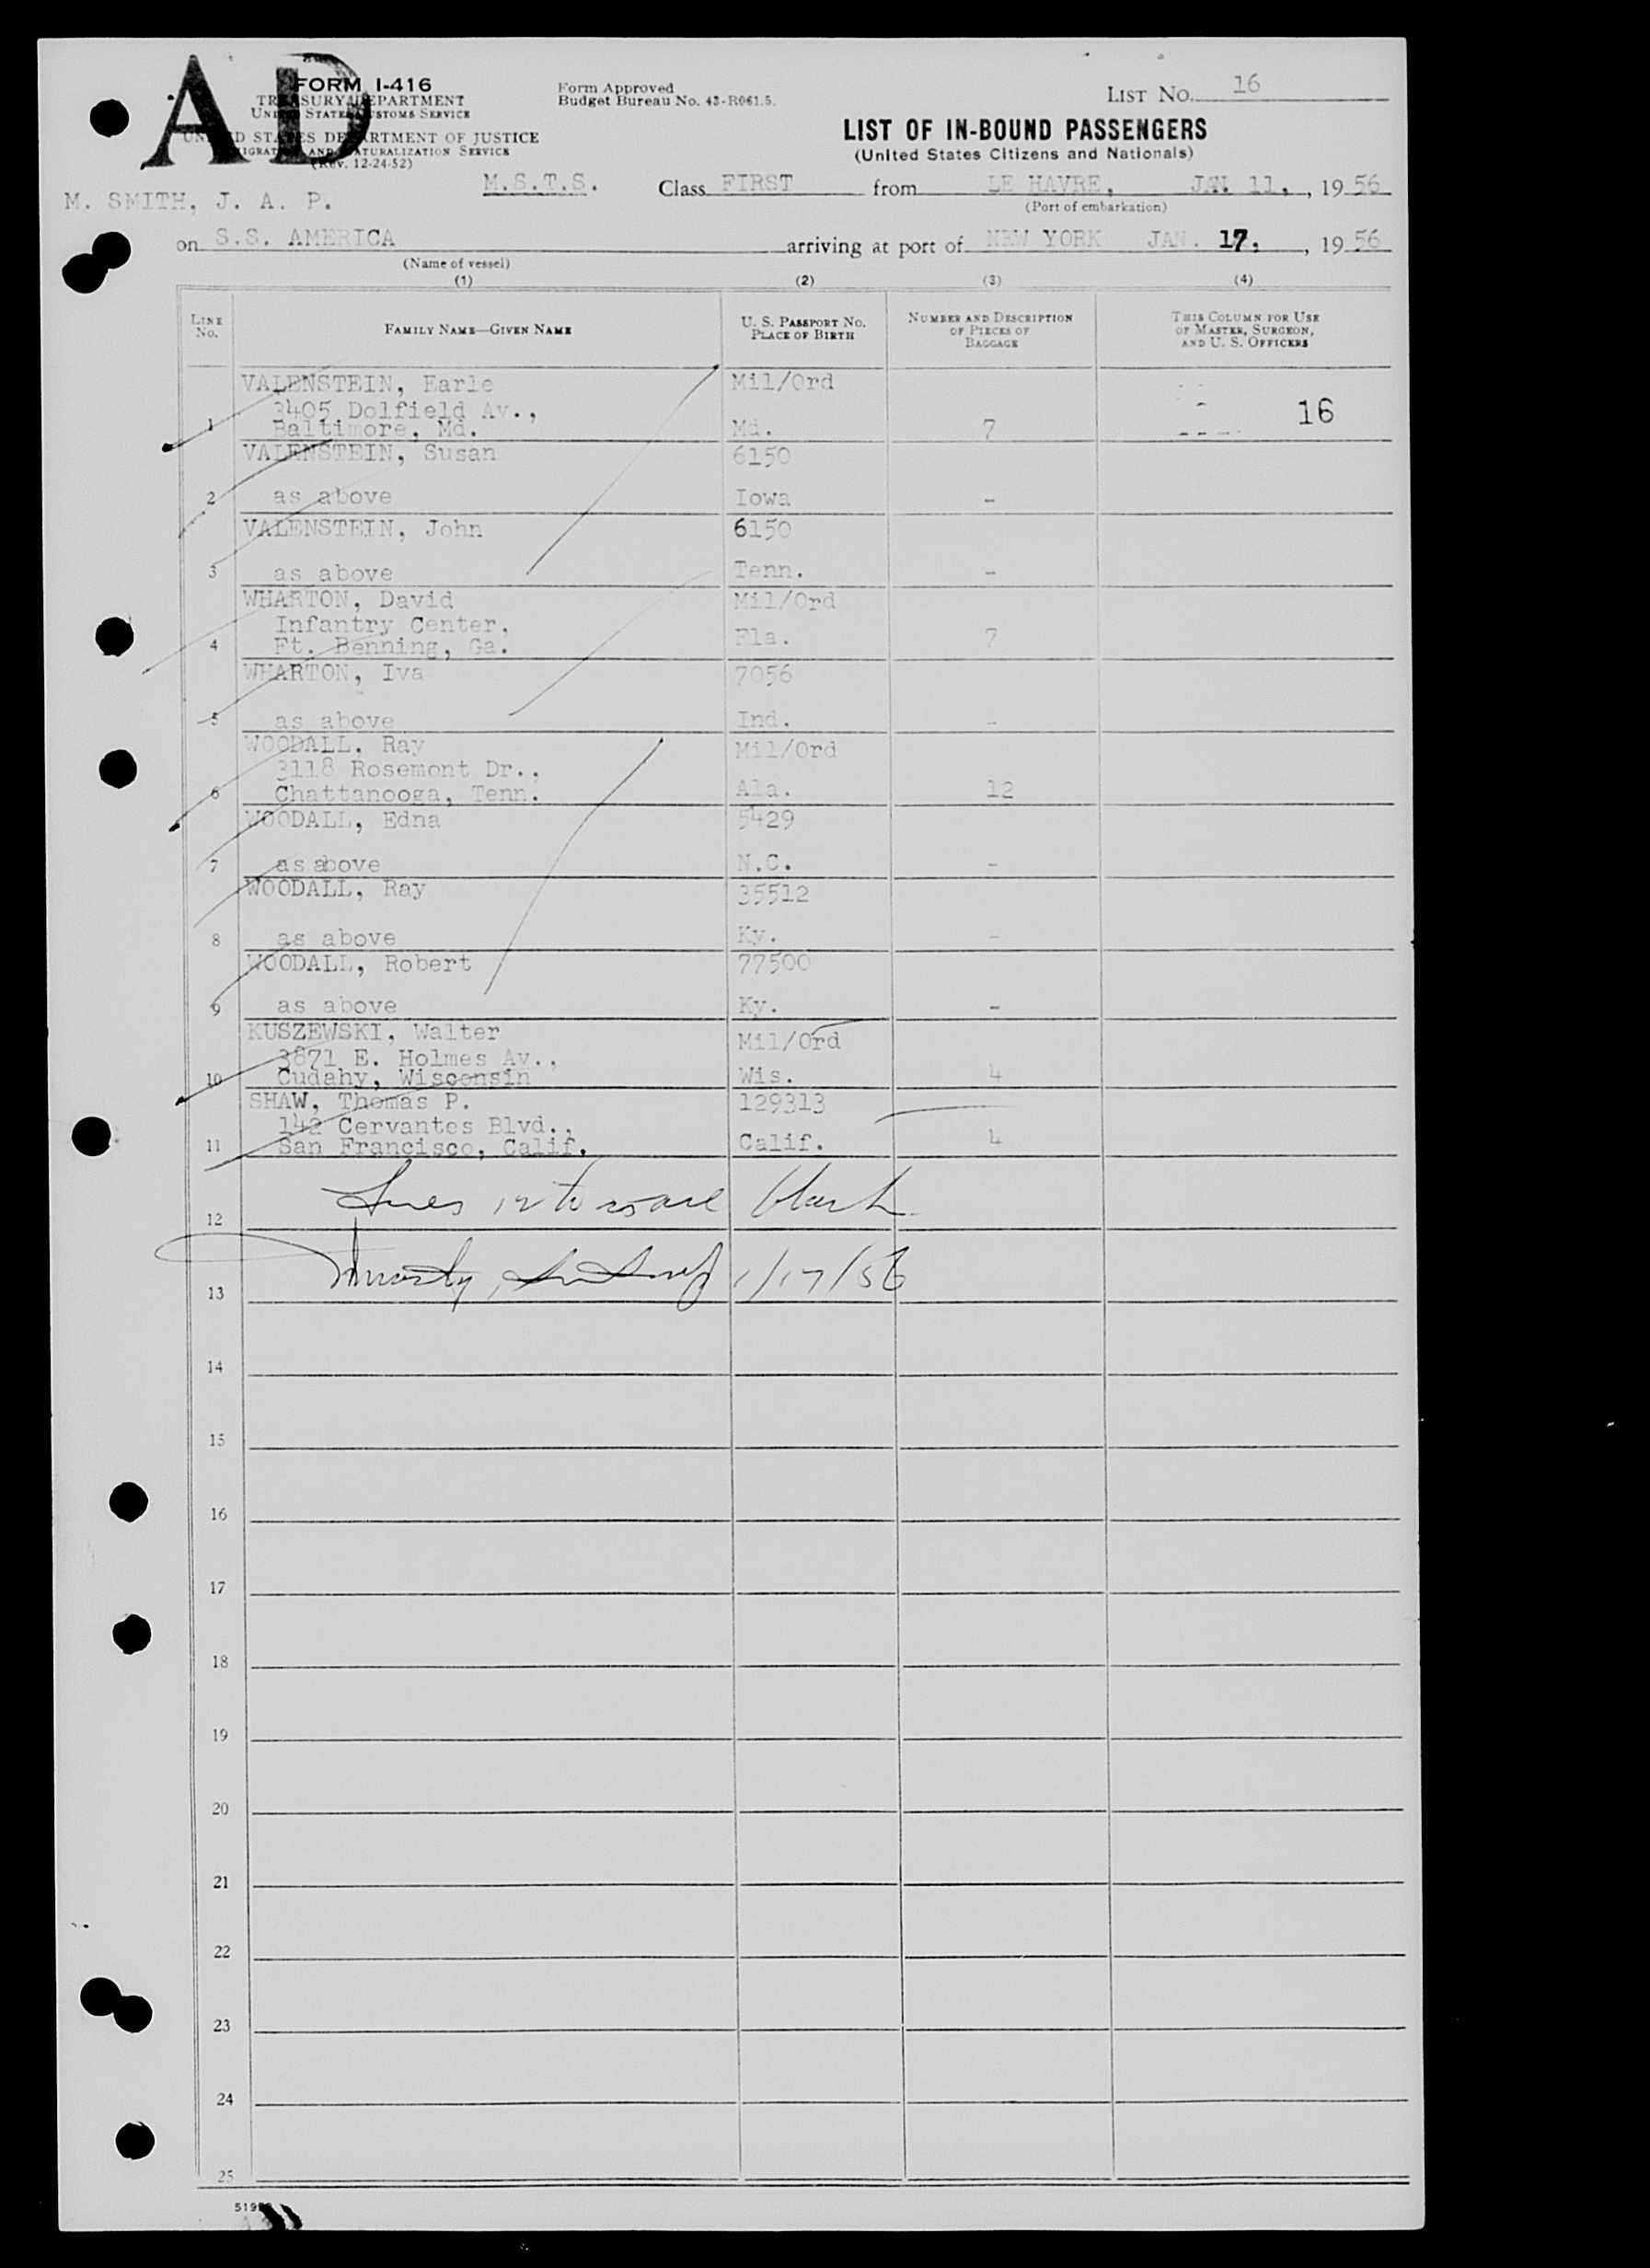 AD
FORM I-416
TREASURY DEPARTMENT
UNITED STATES CUSTOMS SERVICE
UNITED STATES DEPARTMENT OF JUSTICE
IMMIGRATION AND NATURALIZATION SERVICE
(Rev. 12-24-52)
Form Approved
Budget Bureau No. 43-R061.5.
LIST NO. 16
LIST OF IN-BOUND PASSENGERS
(United States Citizens and Nationals)
M. SMITH, J. A. P.
M.S.T.S. Class FIRST from LE HAVRE, JAN. 11, , 1956
(Port of embarkation)
on S.S. AMERICA arriving at port of NEW YORK JAN. 17, , 1956
(Name of vessel)
(1) (2) (3) (4)
LINE No. FAMILY NAME—GIVEN NAME U. S. PASSPORT NO. PLACE OF BIRTH NUMBER AND DESCRIPTION OF PIECES OF BAGGAGE THIS COLUMN FOR USE OF MASTER, SURGEON, AND U. S. OFFICERS
VALENSTEIN, Earle Mil/Ord
3405 Dolfield Av., 16
1 Baltimore, Md. Md. 7
VALENSTEIN, Susan 6150
2 as above Iowa -
VALENSTEIN, John 6150
3 as above Tenn. -
WHARTON, David Mil/Ord
Infantry Center,
4 Ft. Benning, Ga. Fla. 7
WHARTON, Iva 7056
5 as above Ind. -
WOODALL, Ray Mil/Ord
3118 Rosemont Dr.,
6 Chattanooga, Tenn. Ala. 12
WOODALL, Edna 5429
7 as above N.C. -
WOODALL, Ray 35512
8 as above Ky. -
WOODALL, Robert 77500
9 as above Ky. -
KUSZEWSKI, Walter Mil/Ord
3871 E. Holmes Av.,
10 Cudahy, Wisconsin Wis. 4
SHAW, Thomas P. 129313
142 Cervantes Blvd.,
11 San Francisco, Calif. Calif. 4
12 Lines 12 to 25 are blank
13 1/17/56
14
15
16
17
18
19
20
21
22
23
24
25